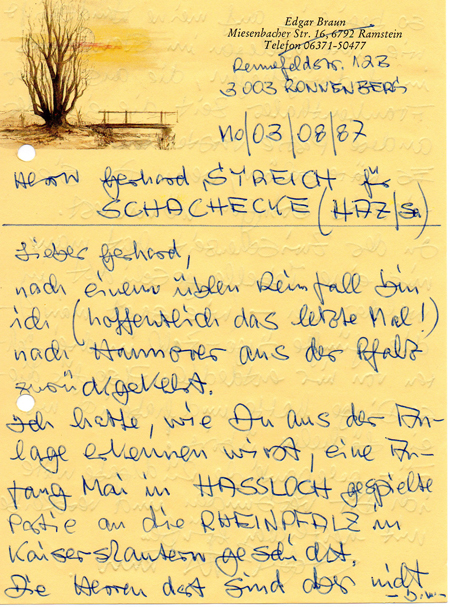 Edgar Braun
Miesenbacher Str. 16, 6792 Ramstein
Telefon 06371-50477
Rennefeldstr. 12B
3003 RONNENBERG
Mo/03/08/87
Herrn Gerhard STREICH für
SCHACHECKE (HAZ/Sa)
Lieber Gerhard,
nach einem üblen Reinfall bin
ich (hoffentlich das letzte Mal!)
nach Hannover aus der Pfalz
zurückgekehrt.
Ich hatte, wie Du aus der An-
lage erkennen wirst, eine An-
fang Mai in HASSLOCH gespielte
Partie an die RHEINPFALZ in
Kaiserslautern geschickt.
Die Herren dort sind aber nicht
-b.w.-